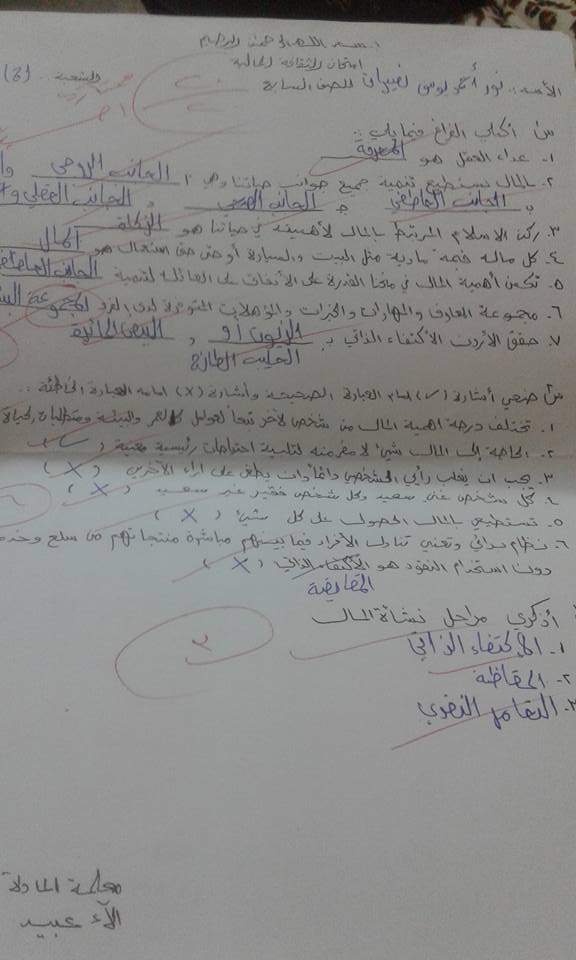 بسم الله الرحمن الرحيم
امتحان الثقافة المالية
الاسم: نور أحمد يونس نصيرات للصف السابع الشعبة .. (3)
س١ أكتب الفراغ فيما يلي :
١. غذاء العقل هو المعرفة
٢. بالمال نستطيع تنمية جميع جوانب حياتنا وهي أ الجانب الروحي
ب الجانب العاطفي جـ الجانب الصحي و الجانب العقلي
٣. ركن الاسلام المرتبط بالمال لأهميته في حياتنا هو الزكاة
٤. كل ماله قيمة مادية مثل البيت والسيارة أو حتى حق استعمال هو المال
٥. تكمن أهمية المال في منحنا القدرة على الأنفاق على العائلة لتنمية الجانب العاطفي
٦. مجموعة المعارف والمهارات والخبرات والمؤهلات المتوفرة لدى الفرد مجموعة
٧. حقق الأردن الاكتفاء الذاتي بـ الزيتون أو , البيض المائدة
الحليب الطازج
س٢ ضعي أشارة (✓) أمام العبارة الصحيحة وأشارة (x) امامه العبارة الخاطئة ..
١. تختلف درجة اهمية المال من شخص لآخر تبعاً لعوامل كالعمر والبيئة ومتطلبات الحياة
٢. الحاجة إلى المال شيء لا مفر منه لتلبية احتياجات رئيسية معينة (✓)
٣. يجب ان يغلب رأي الشخص واتخاذات يطغى على اراء الآخرين (X)
٤. كل شخص غني سعيد وكل شخص فقير غير سعيد (X)
٥. تستطيع بالمال الحصول على كل شيء (X)
٦. نظام بدائي وتعني تبادل الأفراد فيما بينهم مباشرة منتجاتهم من سلع وخدمات
دون استخدام النقود هو الاكتفاء الذاتي (X)
المقايضة
أذكري مراحل نشأة المال
١. الإكتفاء الذاتي
٢. المقايظة
٣. التعامل النقدي
٣
معلمة المادة
الآء عبيد